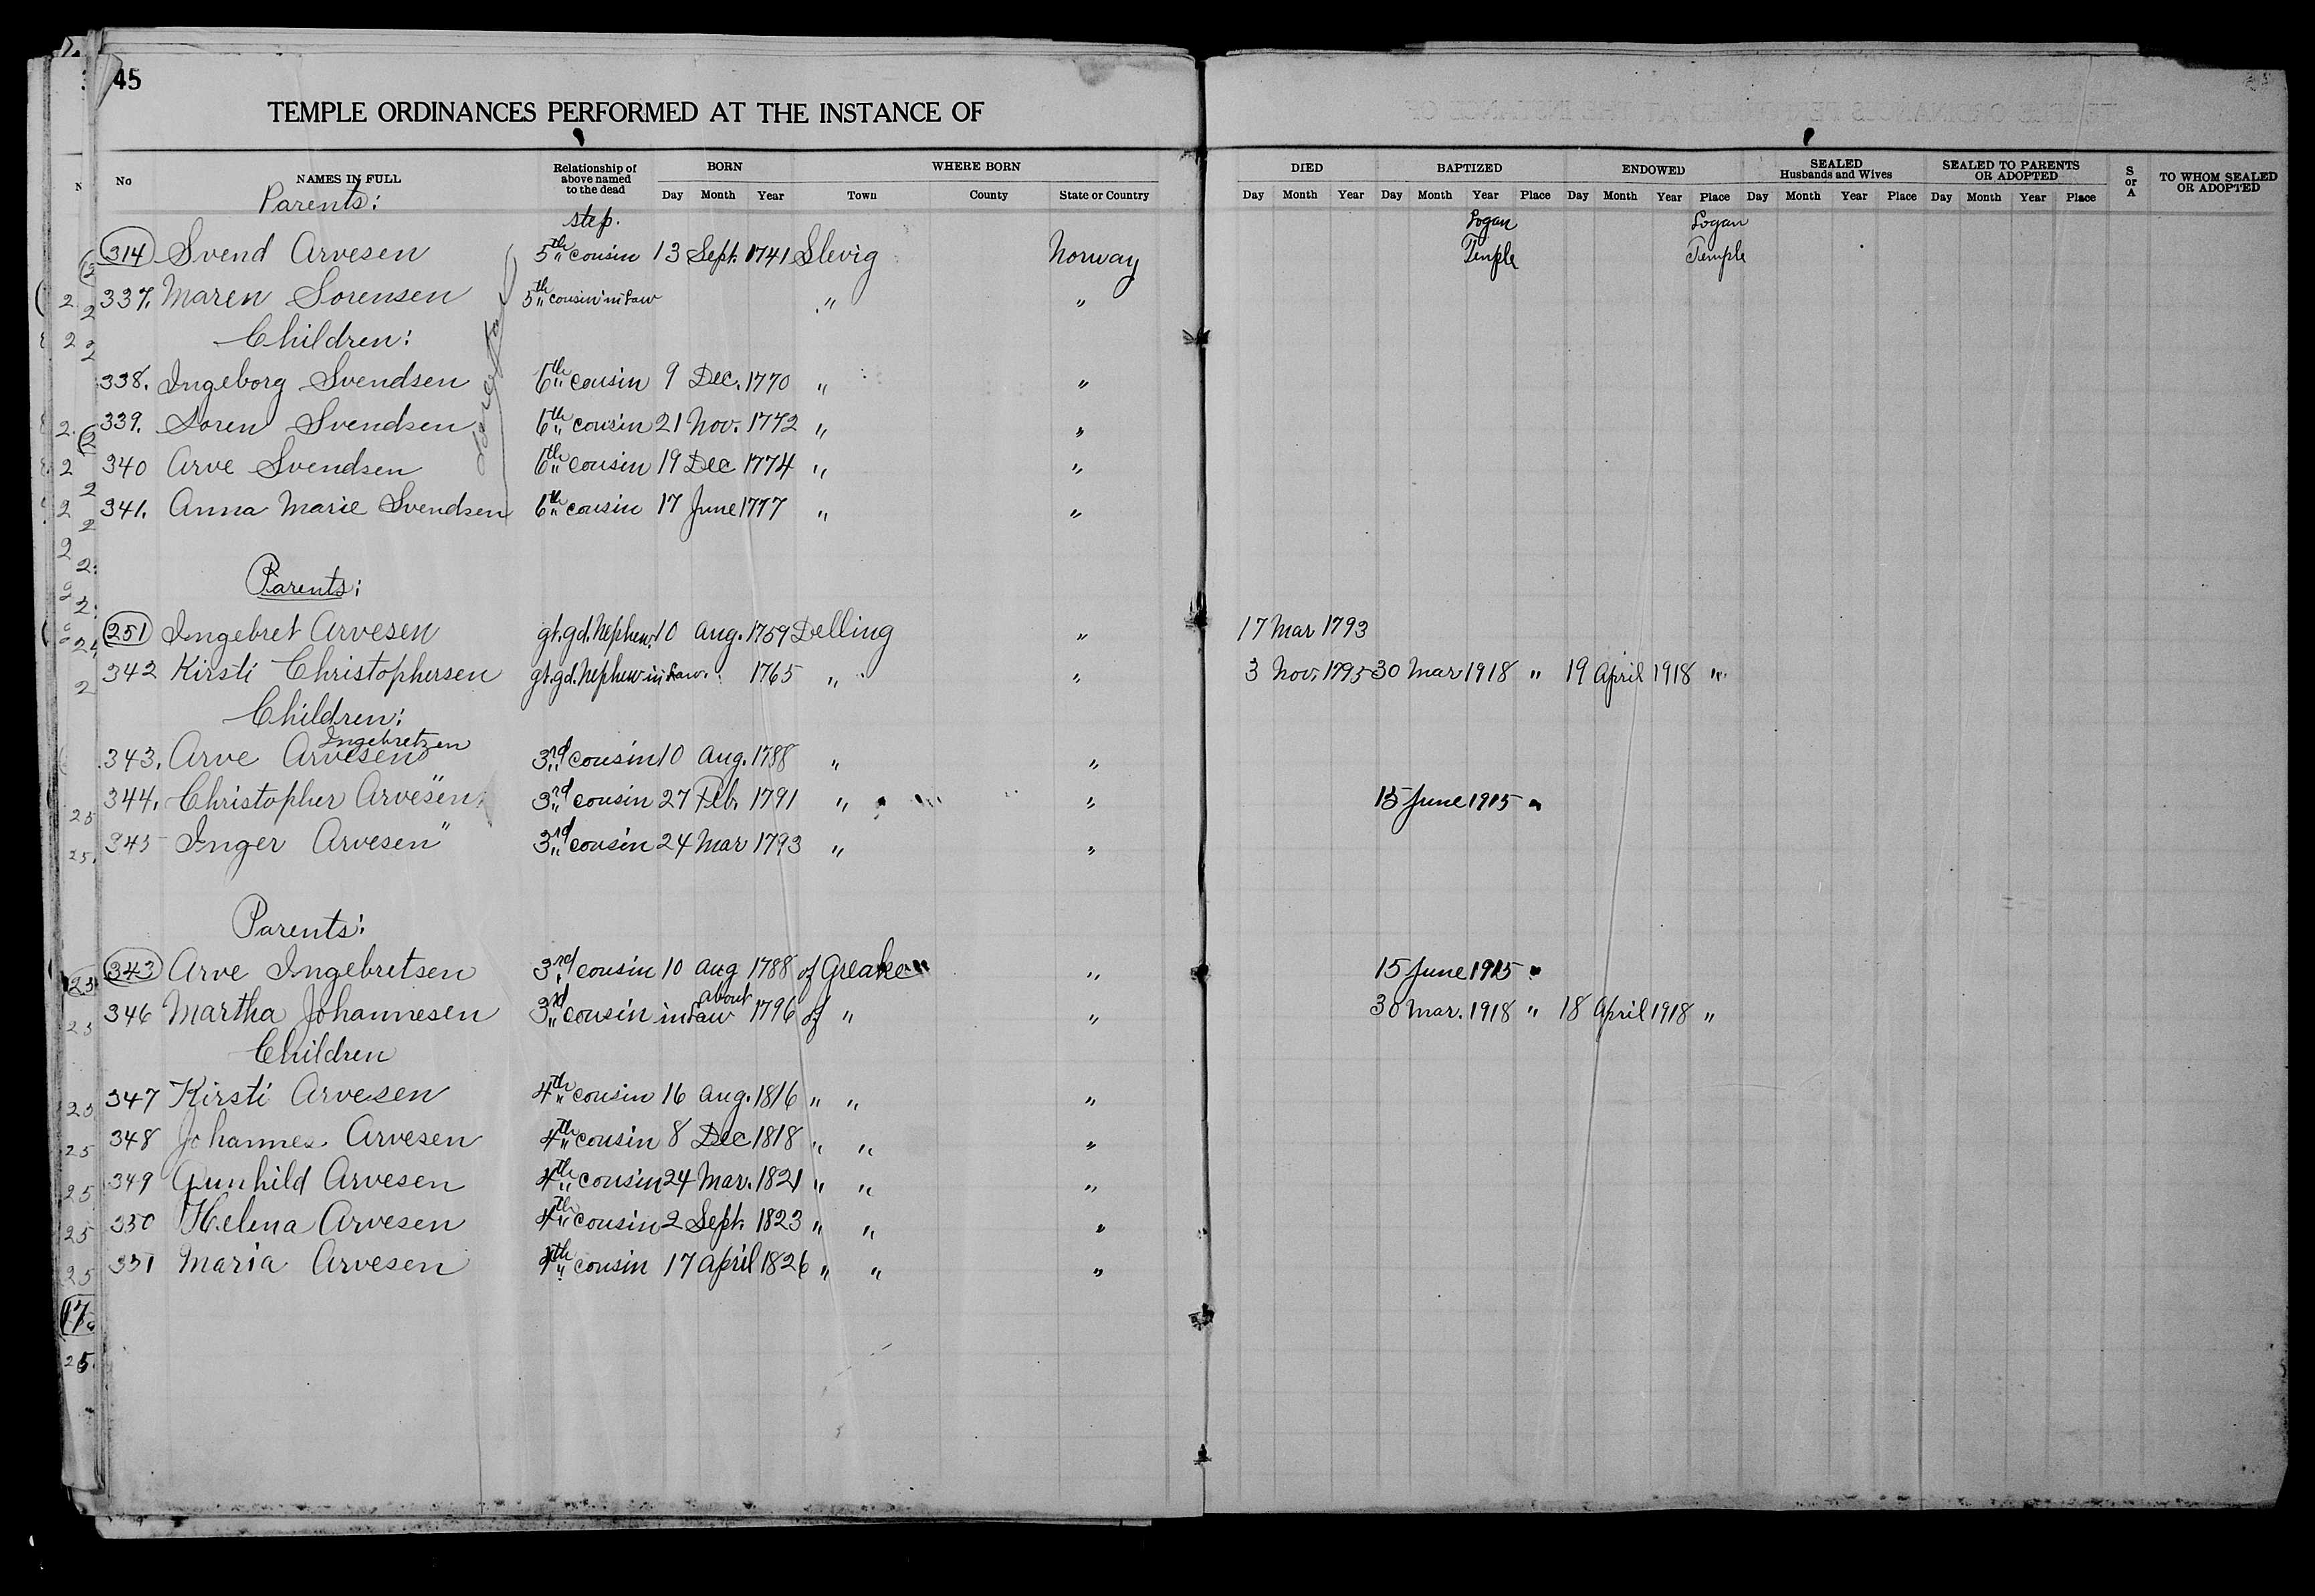 45
TEMPLE ORDINANCES PERFORMED AT THE INSTANCE OF
No NAMES IN FULL Relationship of above named to the dead BORN Day Month Year WHERE BORN Town County State or Country DIED Day Month Year BAPTIZED Day Month Year Place ENDOWED Day Month Year Place SEALED Husbands and Wives Day Month Year Place SEALED TO PARENTS OR ADOPTED Day Month Year Place S or A TO WHOM SEALED OR ADOPTED
Parents:
step. Logan Logan
314 Svend Arvesen 5th cousin 13 Sept. 1741 Slevig Norway Temple Temple
337. Maren Sorensen 5th cousin in Law " "
Children:
338. Ingeborg Svendsen 6th cousin 9 Dec. 1770 " "
339. Soren Svendsen 6th cousin 21 Nov. 1772 " "
340 Arve Svendsen 6th cousin 19 Dec 1774 " "
341. Anna Marie Svendsen 6th cousin 17 June 1777 " "
Parents:
251 Ingebret Arvesen gt.gd. Nephew. 10 Aug. 1759 Delling " 17 Mar 1793
342 Kirsti Christophersen gt.gd. Nephew in Law. 1765 " " 3 Nov. 1795 30 Mar 1918 " 19 April 1918 "
Children:
Ingebretzen
343. Arve Arvesen 3rd cousin 10 Aug. 1788 " "
344. Christopher Arvesen " 3rd cousin 27 Feb. 1791 " " 15 June 1915 "
345 Inger Arvesen " 3rd cousin 24 Mar 1793 " "
Parents:
343 Arve Ingebretsen 3rd cousin 10 Aug 1788 of Greaker " 15 June 1915 "
346 Martha Johannesen 3rd cousin in Law about 1796 of " " 30 Mar. 1918 " 18 April 1918 "
Children
347 Kirsti Arvesen 4th cousin 16 Aug. 1816 " " "
348 Johannes Arvesen 4th cousin 8 Dec 1818 " " "
349 Gunhild Arvesen 4th cousin 24 Mar. 1821 " " "
350 Helena Arvesen 4th cousin 2 Sept. 1823 " " "
351 Maria Arvesen 4th cousin 17 April 1826 " " "